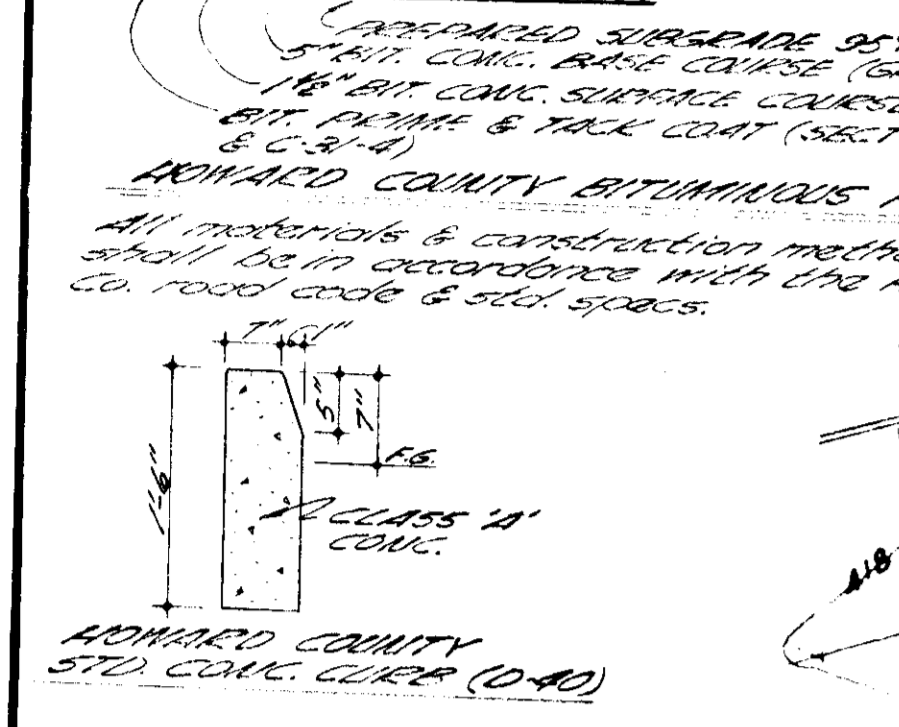 PREPARED SUBGRADE 95
5" BIT. CONC. BASE COURSE (
1½" BIT. CONC. SURFACE COURSE
BIT. PRIME & TACK COAT (SECT
& C-31-4)
HOWARD COUNTY BITUMINOUS
All materials & construction metho
shall be in accordance with the
Co. road code & std. specs.
7" 1"
5"
7"
1'-6"
F.G.
CLASS 'A'
CONC.
HOWARD COUNTY
STD. CONC. CURB (D-40)